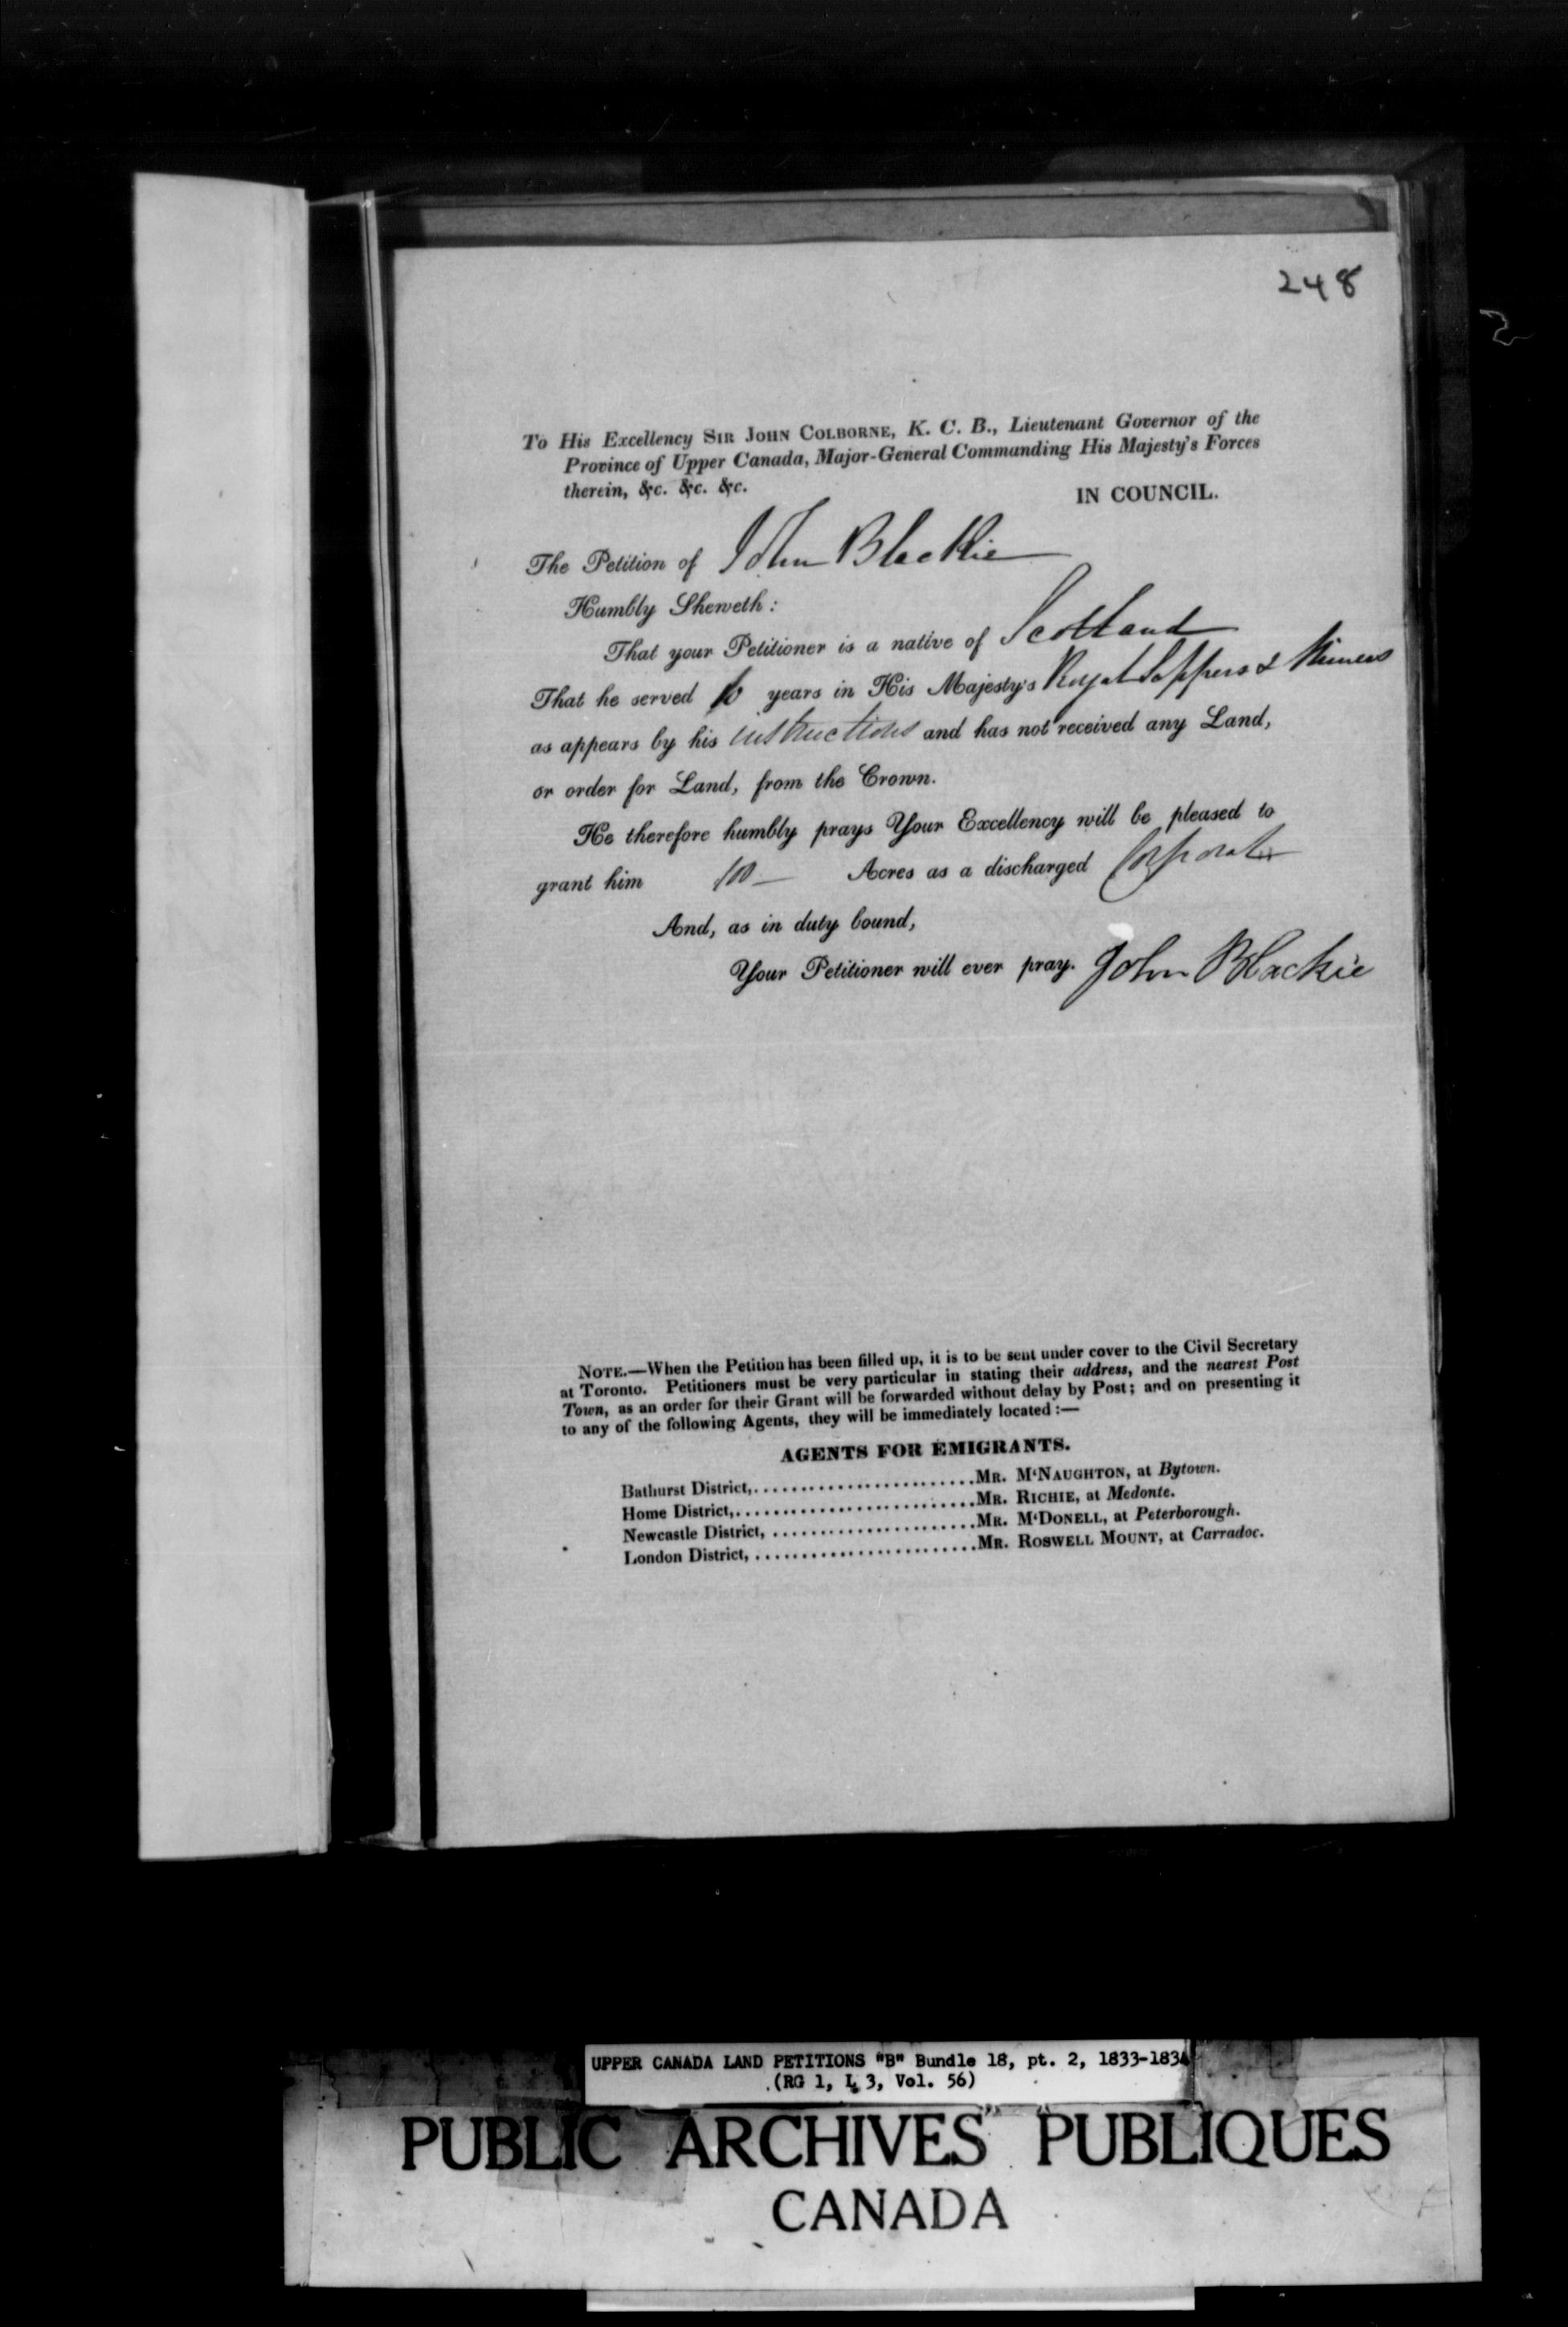 248
To His Excellency SIR JOHN COLBORNE, K. C. B., Lieutenant Governor of the
Province of Upper Canada, Major-General Commanding His Majesty's Forces
therein, &c. &c. &c.
IN COUNCIL.
The Petition of John Blackie
Humbly Sheweth:
That your Petitioner is a native of Scotland
That he served years in His Majesty's Royal Sappers & Miners
as appears by his instructions and has not received any Land,
or order for Land, from the Crown.
He therefore humbly prays Your Excellency will be pleased to
grant him 100 Acres as a discharged Corporal
And, as in duty bound,
Your Petitioner will ever pray. John Blackie
NOTE.—When the Petition has been filled up, it is to be sent under cover to the Civil Secretary
at Toronto. Petitioners must be very particular in stating their address, and the nearest Post
Town, as an order for their Grant will be forwarded without delay by Post; and on presenting it
to any of the following Agents, they will be immediately located :—
AGENTS FOR EMIGRANTS.
Bathurst District,........................MR. M'NAUGHTON, at Bytown.
Home District,..........................MR. RICHIE, at Medonte.
Newcastle District, ......................MR. M'DONELL, at Peterborough.
London District, ........................MR. ROSWELL MOUNT, at Carradoc.
UPPER CANADA LAND PETITIONS "B" Bundle 18, pt. 2, 1833-1834
(RG 1, L 3, Vol. 56)
PUBLIC ARCHIVES PUBLIQUES
CANADA